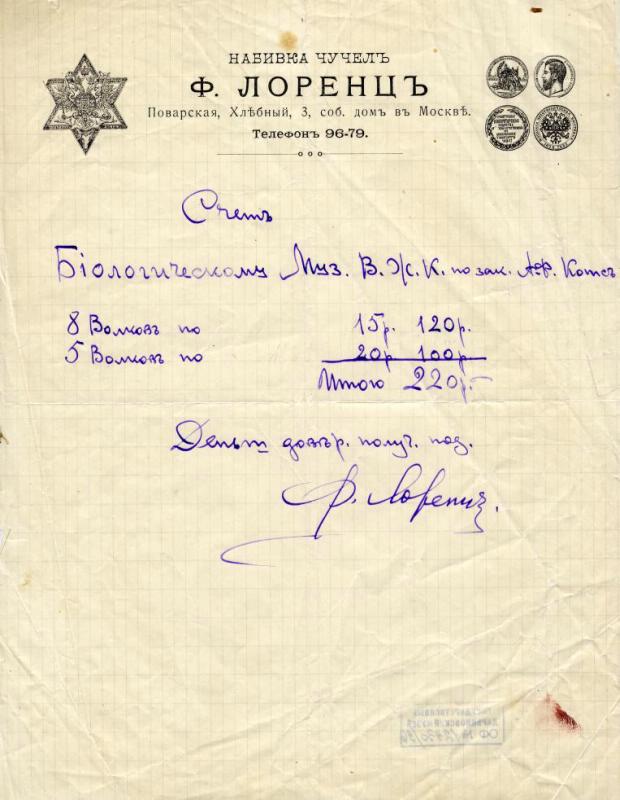 НАБИВКА ЧУЧЕЛЪ
Ф. ЛОРЕНЦЪ
Поварская, Хлѣбный, 3, соб. домъ въ Москвѣ.
Телефонъ 96-79.
Счетъ
Біологическому Муз. В. Ж. К. по зак. А.Ф. Котсъ
8 Волковъ по 15р. 120р.
5 Волковъ по 20р 100р
Итого 220р-
Деньги довѣр. получ. под.
Ф. Лоренцъ.
ГОСУДАРСТВЕННЫЙ
ДАРВИНОВСКИЙ МУЗЕЙ
ОФ №